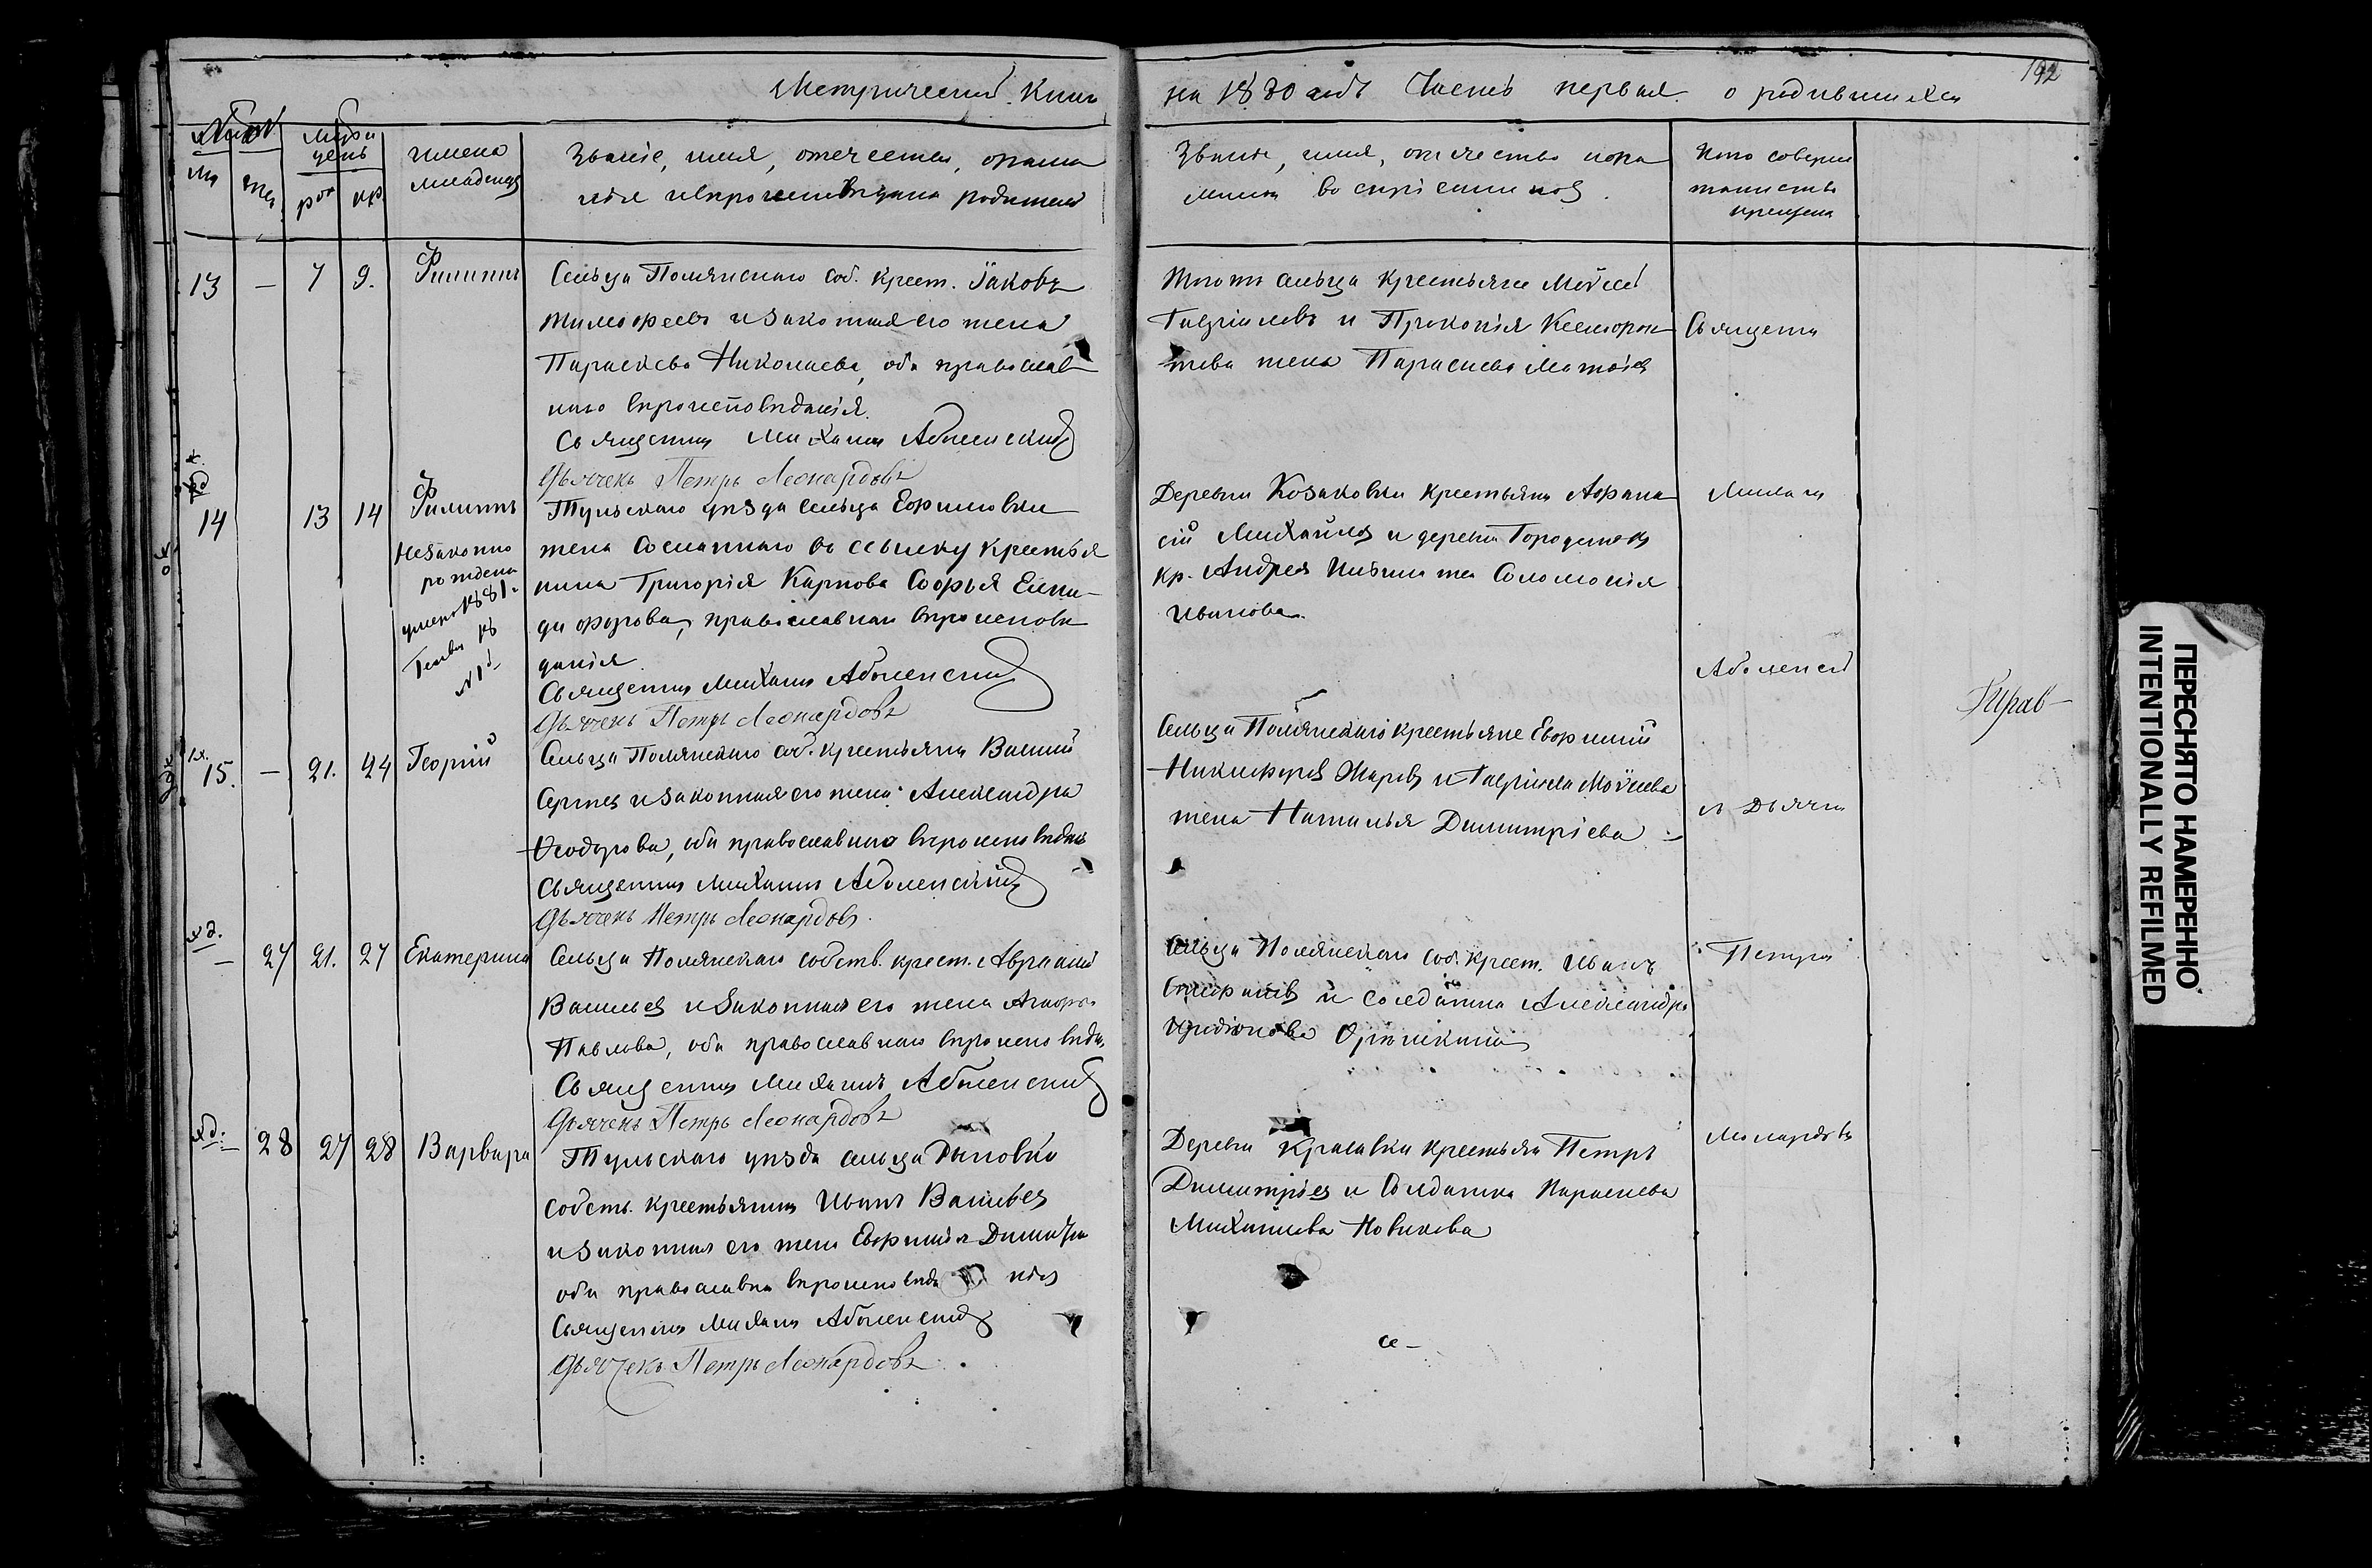 192
Метрической Книги
на 1880 годъ Часть первая о родившихся
Мѣся
цъ
рож
кр
имена
младенц
Званіе, имя, отечество, фами
лія и вѣроисповѣданія родителей
Званіе, имя, отчество и фа
милія воспріемниковъ
Кто соверш
таинство
крещенія
13 — 7 9. Филиппъ
Сельца Полянскаго соб. крест. Іаковъ
Тимофеевъ и законная его жена
Параскева Николаева, оба православ
наго вѣроисповѣданія.
Священникъ Михаилъ Аболенскій
Дьячекъ Петръ Леонардовъ
Тогожъ сельца крестьяне Моѵсей
Гавріиловъ и Прокопія Ксенофон
това жена Параскева Матвіев
Священни
14 13 14 Филиппъ
Незаконно
рожденн
умеръ 1881 г.
Генвар 18
№ 1й
Тульскаго уѣзда сельца Ефимовки
жена сосланнаго въ ссылку крестья
нина Григорія Карпова Софья Ели-
ди форова, православнаго вѣроисповѣ
данія
Священникъ Михаилъ Аболенскій
Дьячекъ Петръ Леонардовъ
Деревни Козаковки крестьянинъ Афана
сій Михайловъ и деревни Городенокъ
кр. Андрея жена Соломонія
Иванова.
Михаилъ
Аболенскій
15. — 21. 24 Георгій
Сельца Полянскаго соб. крестьянинъ Василій
Сергѣевъ и законная его жена Александра
Ѳеодорова, оба православнаго вѣроисповѣдан
Священникъ Михаилъ Аболенскій
Дьячекъ Петръ Леонардовъ.
Сельца Полянскаго крестьяне Евфимій
Никифоровъ Жаровъ и Гавріила Моѵсеева
жена Наталья Димитріева
и Дьячекъ
— 27 21. 27 Екатерина
Сельца Полянскаго собств. крест. Авраамій
Васильевъ и законная его жена Агафья
Павлова, оба православнаго вѣроисповѣдан
Священникъ Михаилъ Аболенскій
Дьячекъ Петръ Леонардовъ
Сельца Полянскаго соб. крест. Иванъ
и солдатка Александра
Петръ
— 28 27 28 Варвара
Тульскаго уѣзда сельца Рыловки
собств. крестьянинъ Иванъ Васильевъ
и законная его жена Евфимія Димитрі
оба православн вѣроисповѣда нія
Священникъ Михаилъ Аболенскій
Дьячекъ Петръ Леонардовъ.
Деревни Красавки крестьянинъ Петръ
Димитріевъ и Солдатка Параскева
Михаилова Новикова
Леонардовъ
се-
ПЕРЕСНЯТО НАМЕРЕННО
INTENTIONALLY REFILMED